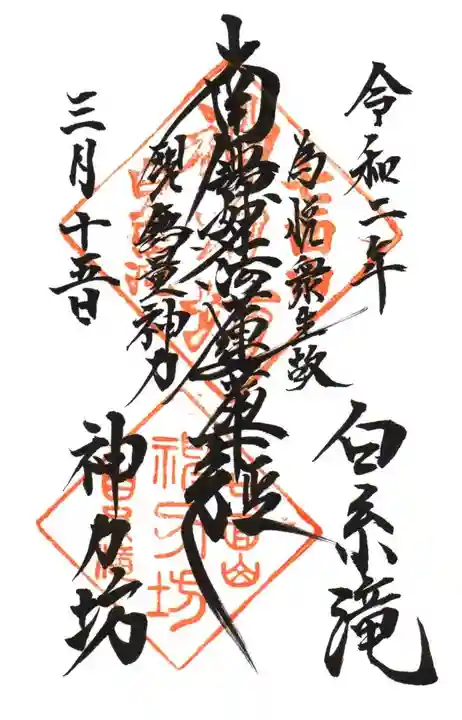 令和二年
白糸滝
為悦衆生故
南無妙法蓮華経
現無量神力
三月十五日
神力坊
神力坊